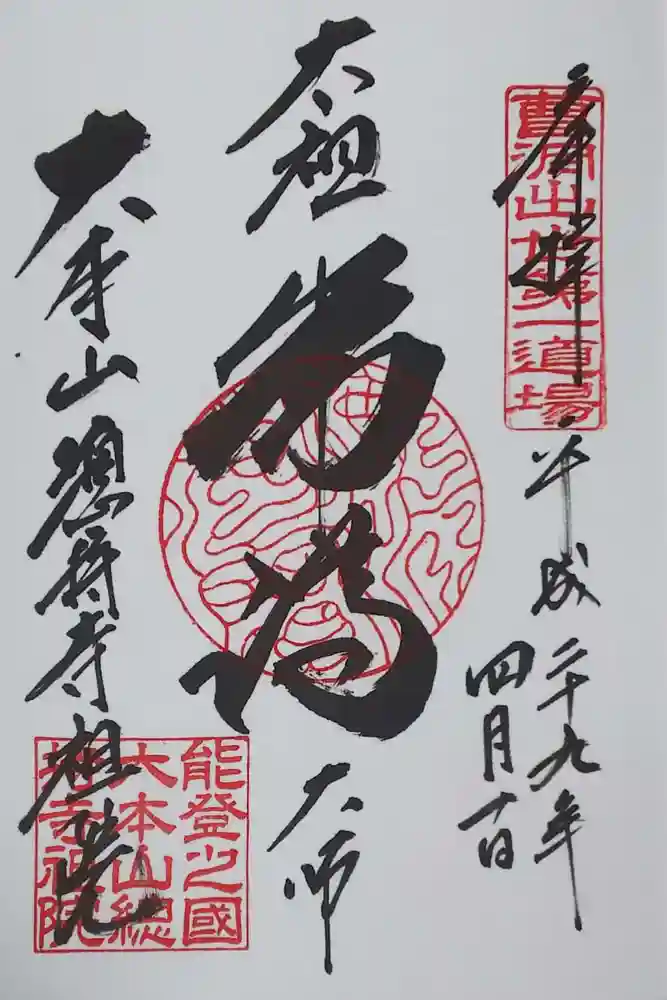 奉拝
曹洞出世第一道場
平成二十九年
四月
太祖
常済
大師
大本山總持寺祖院
能登之國
大本山總
持寺祖院